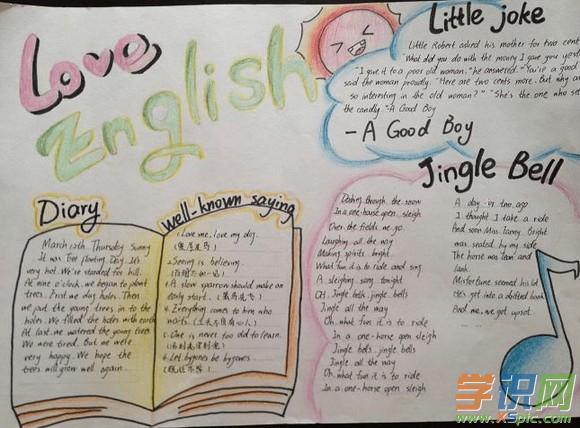 Love
English
Little joke
Little Robert asked his mother for two cent
"What did you do with the money I gave you yest
"I gave it to a poor old woman," he answered. "You're a good
said the woman proudly. "Here are two cents more. But why a
so interesting in the old woman?" "She's the one who se
the candy. -A Good Boy
-A Good Boy
Jingle Bell
Dashing though the snow
In a one-horse open sleigh
Over the fields we go
Laughing all the way
Making spirits bright
What fun it is to ride and sing
A sleighing song tonight
Oh, Jingle bells, jingle bells
Jingle all the way
Oh, what fun it is to ride
In a one-horse open sleigh
Jingle bells, jingle bells
Jingle all the way
Oh what fun it is to ride
In a one-horse open sleigh
A day or two ago
I thought I take a ride
And soon Miss Fanny Bright
was seated by my side
The horse was lean and
lank
Misfortune seemed his lot
He's got into a drifted bank
And we, we got upsot
Diary
March 12th Thursday Sunny
It was Tree Planting Day. It's
very hot. We're standed for hill.
At nine o'clock, we began to plant
trees. First we dig holes. Then
we put the young trees in to the
holes. We filled the holes with earth.
At last we watered the young trees.
We were tired. But we were
very happy. We hope the
trees will grow well again.
well-known saying
1. Love me, love my dog.
(爱屋及乌)
2. Seeing is believing.
(百闻不如一见)
3. A slow sparrow should make an
early start. (笨鸟先飞)
4. Everything comes to him who
waits.
5. One is never too old to learn.
6. Let bygones be bygones.
(既往不咎)
学识网
www.xspic.com